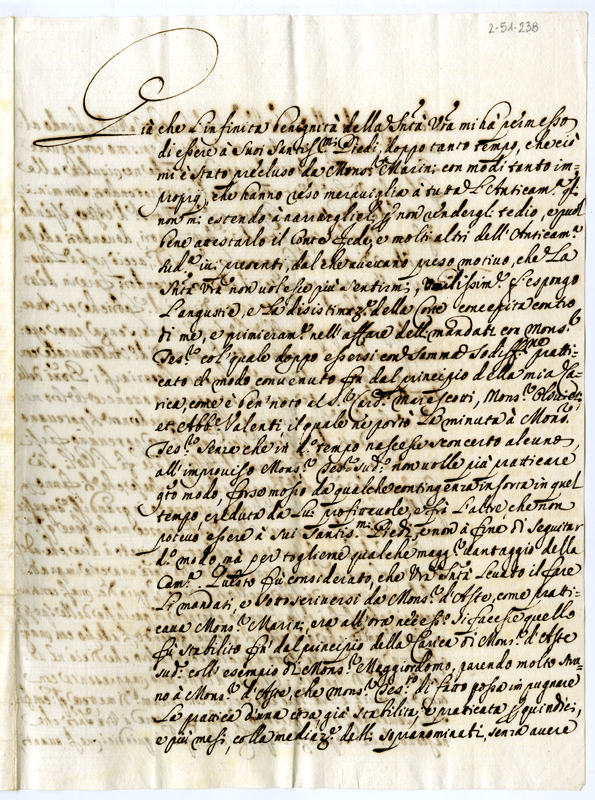 2-51-238
Già che l'infinita benignità della Sntà Vra mi hà permesso
di essere à Suoi Santiss.mi Piedi, doppo tanto tempo, che ciò
mi è stato precluso da Monsr Marini con modi tanto im=
proprij, che hanno reso meraviglia à tutta l'Anticam.a
non m: estendo à narrargliel: p non rendergl: tedio, e puol
bene attestarlo il Conte Fede, e molti altri dell'Anticam.a
Sud.a ivi presenti, dal che avevano preso motivo, che La
Sntà Vra non volesse più sentirmi, umilissim.e L'espongo
L'angustie, e La disistimaz.e della Corte concepita contro
di me, e primieram.e nell'affare delli mandati con Mons.r
Tes.re col quale doppo essersi con somma Sodisf.ne pratti=
cato il modo convenuto fin dal principio della mia Ca=
rica, come è ben noto al S.r Card. Marescotti, Mons.r Olivieri,
et Abb.e Valenti, il quale ne portò La minuta à Mons.r
Tes.re Senza che in d.o tempo nascesse sconcerto alcuno,
all'improviso Mons.r Tes.re Sud.o non volle più pratticare
qto modo, forse mosso da qualche contingenza insorta in quel
tempo, creduta da Lui profittevole, e frà L'altre che non
potevo essere à Suoi Santis.mi Piedi, e non à fine di seguitar
d.o modo, mà per togliere qualche magg.r vantaggio della
Cam.a Questo fù considerato, che Vra Sntà Levato il fare
Li mandati, e sottoscriversi da Mons.r d'Aste, come pratti=
cava Mons.r Marini, era all'ora necess.o si facesse quello
fù stabilito fin dal principio della Carica di Mons.r d'Aste
sud.o coll'esempio di Mons.r Maggiordomo, parendo molto stra=
no à Mons.r d'Aste, che mons.r Tes.re di fatto possa inpugnare
La prattica d'una cosa già stabilita, e pratticata p quindici,
e più mesi, colla mediaz.e delli sopranominati, senza avere